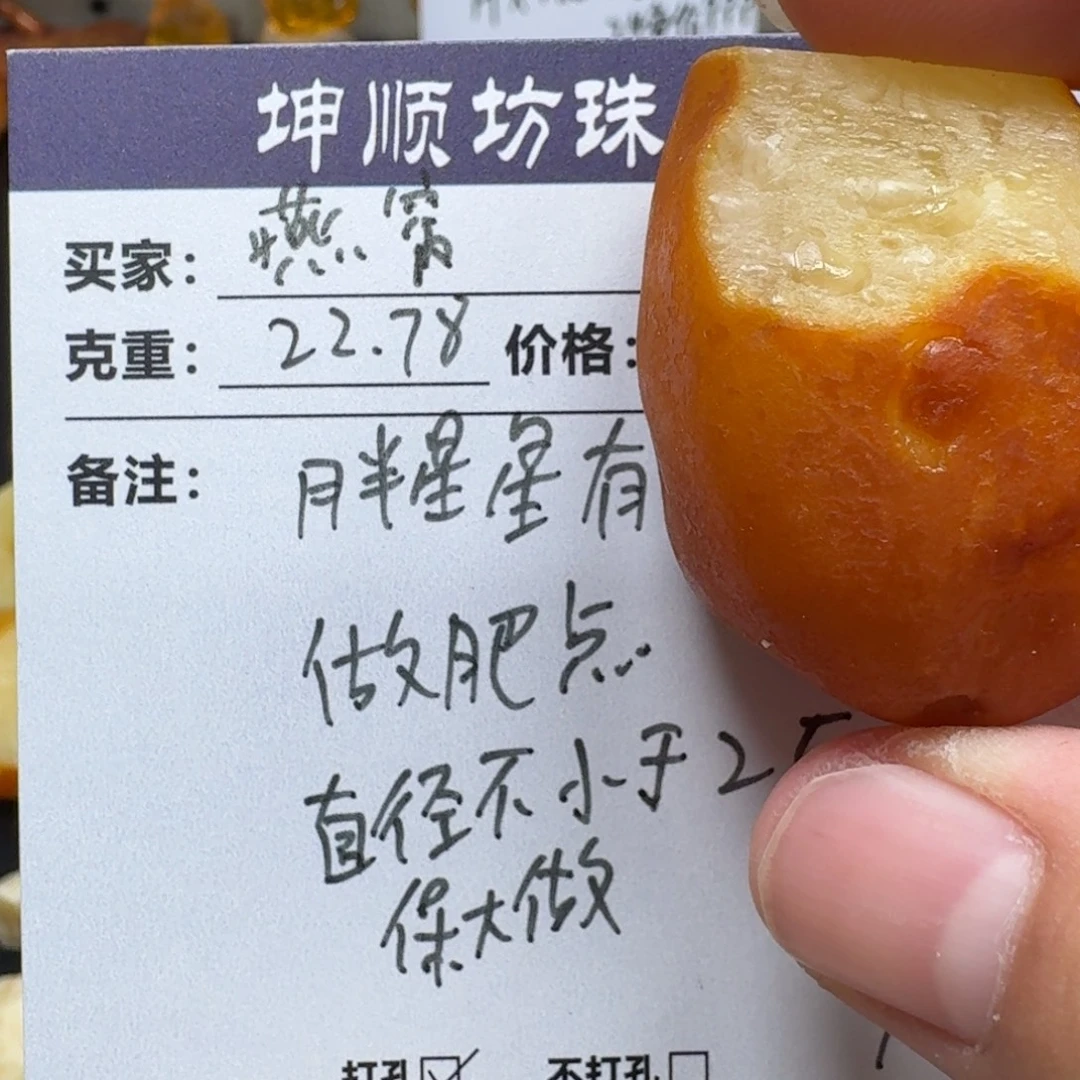 坤顺坊珠
买家: 燕窝
克重: 22.78 价格:
备注: 胖星星有
做肥点
直径不小于25
保大做
打孔 不打孔